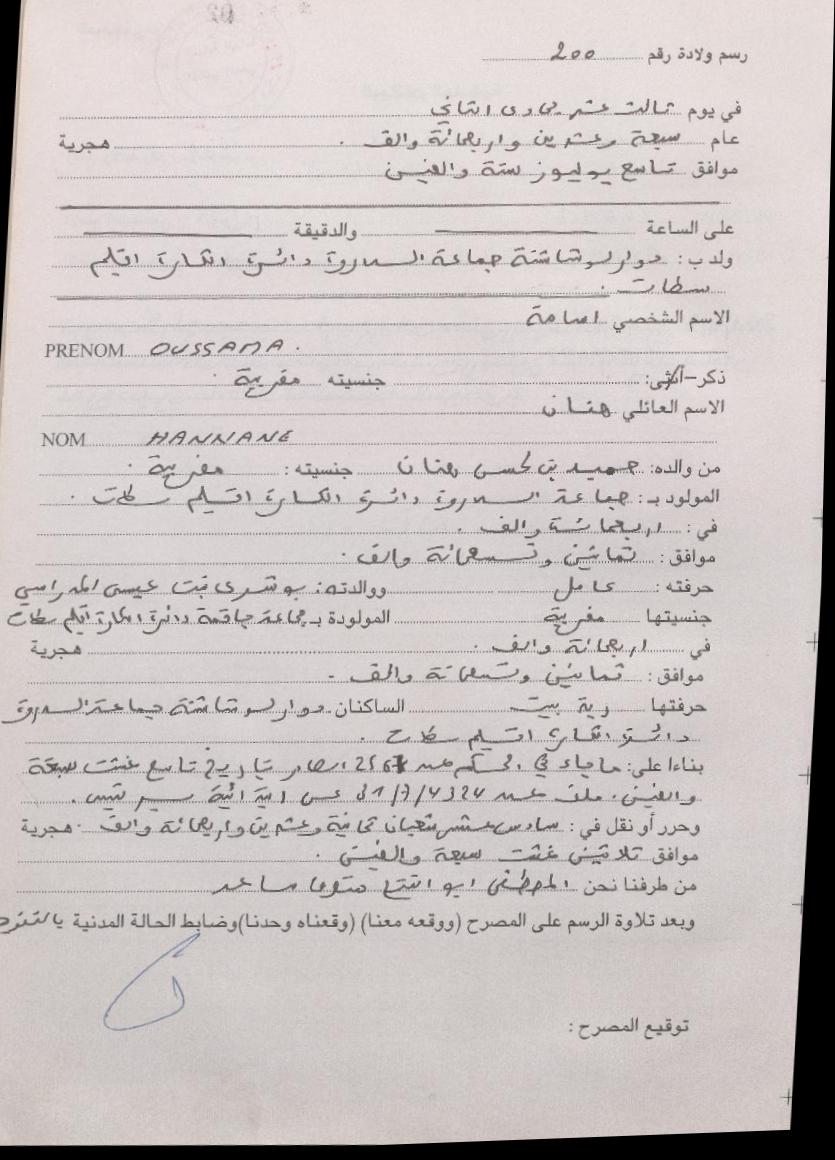 رسم ولادة رقم 200
في يوم ثالث عشر جمادى الثاني
عام سبعة وعشرين واربعمائة والف . هجرية
موافق تاسع يوليوز ستة والفين
على الساعة والدقيقة
ولد ب : دوار لبوشاشنة جماعة السدروة دائرة الكارة اقليم
سطات .
الاسم الشخصي اسامة
PRENOM OUSSAMA .
ذكر-أنثى: جنسيته مغربية .
الاسم العائلي هنان
NOM HANNANE
من والده: حميد بن لحسن هنان جنسيته : مغربية .
المولود بـ : جماعة السدروة دائرة الكارة اقليم سطات .
في : اربعمائة والف .
موافق : ثمانين وتسعمائة والف .
حرفته : عامل ووالدته : بوشرى بنت عيسى المدراسي
جنسيتها مغربية المولودة بـ جماعة دائرة الكارة اقليم سطات
في اربعمائة والف . هجرية
موافق : ثمانين وتسعمائة والف .
حرفتها ربة بيت الساكنان دوار لبوشاشنة جماعة السدروة
دائرة الكارة اقليم سطات .
بناءا على: ماجاء في الحكم عدد الصادر بتاريخ تاسع غشت سبعة
والفين . ملف عدد عن ابتدائية
وحرر أو نقل في : سادس عشر شعبان ثمانية وعشرين واربعمائة والف . هجرية
موافق ثلاثين غشت سبعة والفين .
من طرفنا نحن المصطفى ابو
وبعد تلاوة الرسم على المصرح (ووقعه معنا) (وقعناه وحدنا) وضابط الحالة المدنية
توقيع المصرح :